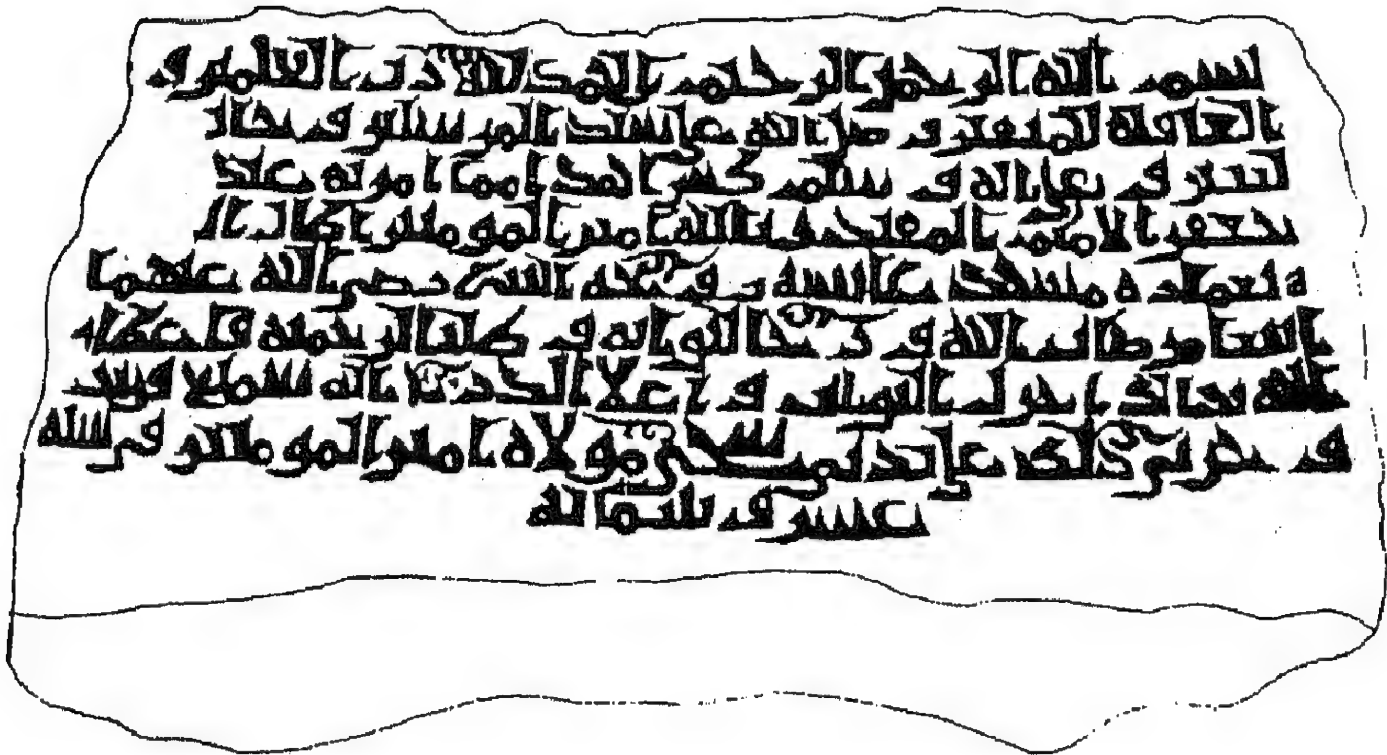 بسم الله الرحمن الرحيم الحمد لله رب العلمين و
العاقبة للمتقين و صلى الله على سيد المرسلين و
و على اله و سلم كثيرا هذا مما امر به عبد
جعفر الامام المقتدر بالله امير المومنين اطال
بعمارة مسجد عائشة زوجة النبي رضي الله عنهما
ابتغا مرضات الله و رجا لثوابه و طلبا لرحمته
الله بذلك و اعلا الدرجة انه سميع قريب
و جرى ذلك على يد مولاه امير المومنين في سنة
عشر و ثلثمائة